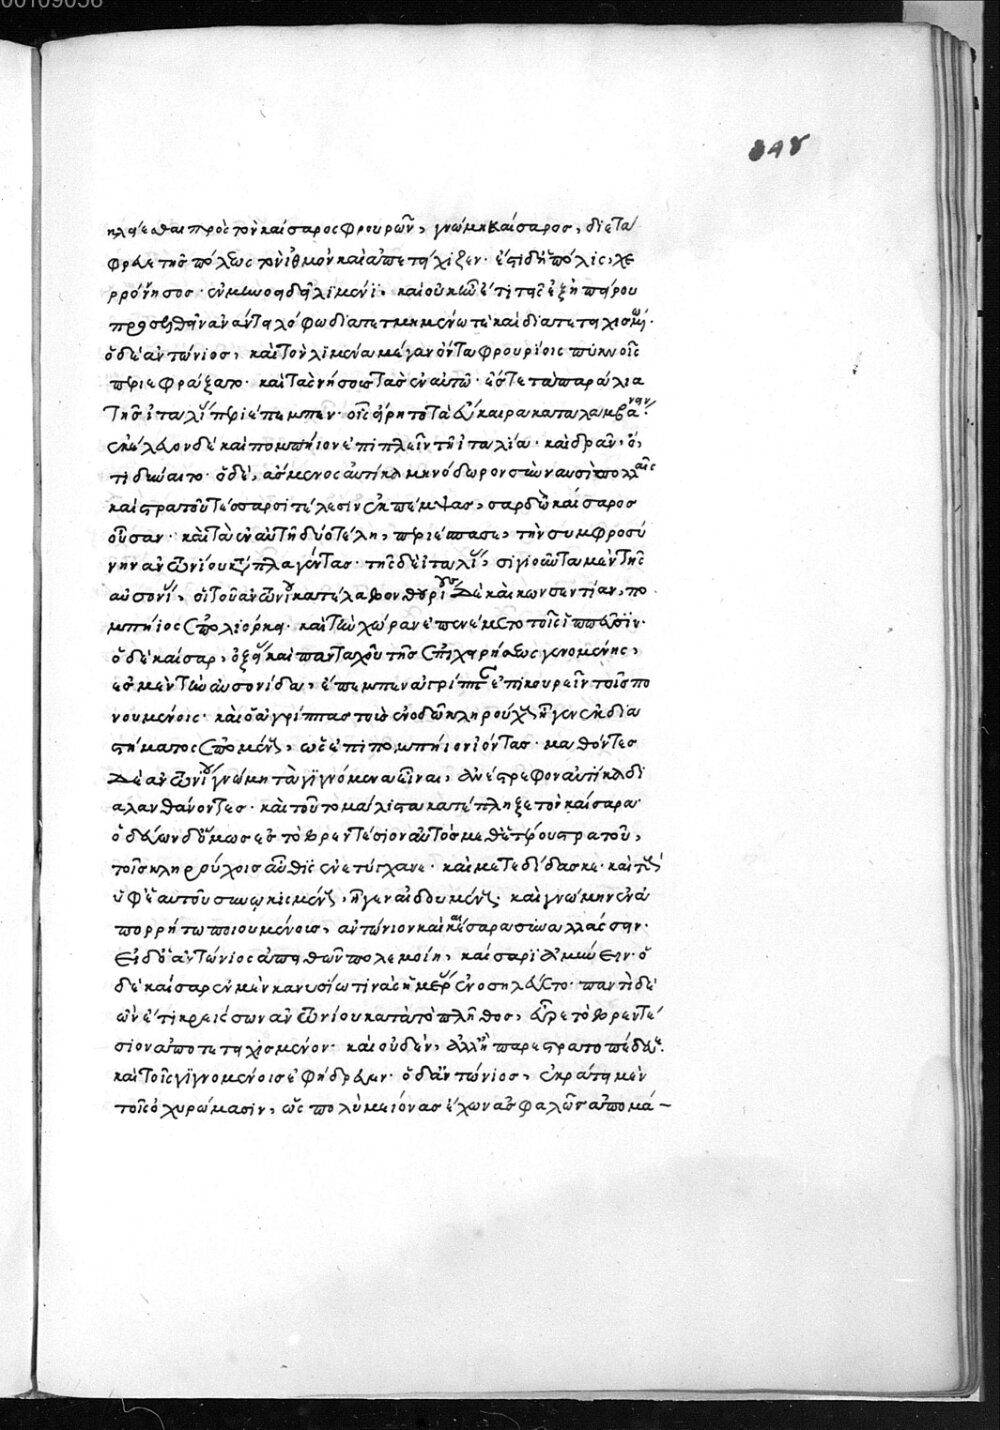 κλεῖεσθαι πρὸς τὸν καίσαρος φρουρῶν, γνώμη καίσαρος, διετα
φρευε τῆς πόλεως τὸν ἰσθμὸν καὶ ἀπετείχιζεν. ἔστι δὴ πόλις, χε
ρρόνησος. ἐν μηνοειδεῖ λιμένι. καὶ οὐκ ἦν ἔτι τοῖς ἐξ ἠπείρου
προσελθεῖν ἀνάντει λόφω διατετμημένω τε καὶ διατετειχισμένω.
ὁ δὲ ἀντώνιος, καὶ τὸν λιμένα μέγαν ὄντα φρουρίοις πυκνοῖς
περιεφράξατο. καὶ τὰς νήσους τὰς ἐν αὐτῶ. ἔς τε τὰ παράλια
τῆς ἰταλίας περιέπεμπεν. οἷς εἴρητο τὰ εὔκαιρα καταλαμβάνειν.
ἐκέλευον δὲ καὶ πομπήιον ἐπιπλεῖν τῆ ἰταλία. καὶ δρᾶν, ὅ,
τι δύναιτο. ὁ δὲ, ἄσμενος αὐτίκα μηνόδωρον σὺν ναυσὶ πολλαῖς
καὶ στρατοῦ τέσσαρσι τέλεσιν ἐκπέμψας, σαρδὼ καίσαρος
οὖσαν. καὶ τὰ ἐν αὐτῆ δύο τέλη, περιέσπασε, τὴν συμφροσύ
νην ἀντωνίου καταπλαγέντας. τῆς δὲ ἰταλίας, σιγιοῦντα μὲν τῆς
αὐσονίας, οἱ τοῦ ἀντωνίου κατέλαβον θουρίους δὲ καὶ κωνσεντίαν, πο
μπήιος ἐπολιόρκει. καὶ τὴν χώραν ἐπενέμετο τοῖς ἱππεῦσιν.
ὁ δὲ καίσαρ, ὀξείας καὶ πανταχοῦ τῆς ἐπιχειρήσεως γενομένης,
ἐς μὲν τὴν αὐσονίδα, ἔπεμπεν ἀγρίππαν ἐπικουρεῖν τοῖς πο
νουμένοις. καὶ ὁ ἀγρίππας τοὺς ἐν ὁδῶ κληρούχους ἦγεν ἐκ δια
στήματος ἑπομένους, ὡς ἐπὶ πομπήιον ἰόντας. μαθόντες
δὲ ἀντωνίου γνώμη τὰ γιγνόμενα εἶναι, ἀνέστρεφον αὐτίκα δι
αλανθάνοντες. καὶ τοῦτο μάλιστα κατέπληξε τὸν καίσαρα.
ὁδεύων δ' ὅμως ἐς τὸ βρεντέσιον αὐτὸς μεθ' ἑτέρου στρατοῦ,
τοῖς κληρούχοις αὖθις ἐνετύγχανε. καὶ μετεδίδασκε. καὶ τοὺς
ὑφ' ἑαυτοῦ συνωκισμένους, ἦγεν αἰδουμένους. καὶ γνώμην ἐν ἀ
πορρήτω ποιουμένους, ἀντώνιον καὶ καίσαρα συναλλάσσειν.
εἰ δ' ὁ ἀντώνιος ἀπειθῶν πολεμοίη, καίσαρι ἀμύνειν. ὁ
δὲ καίσαρ ἐν μὲν κανυσίω τινὰς ἡμέρας ἐνοσηλεύετο. παντὶ δὲ
ὢν ἔτι κρείσσων ἀντωνίου κατὰ τὸ πλῆθος, εὗρε τὸ βρεντέ
σιον ἀποτετειχισμένον. καὶ οὐδὲν, ἀλλ' ἢ παρεστρατοπέδευε.
καὶ τοῖς γιγνομένοις ἐφήδρευεν. ὁ δ' ἀντώνιος, ἐκράτει μὲν
τοῖς ὀχυρώμασιν, ὡς πολὺ μείονας ἔχων ἀσφαλῶς ἀπομά-